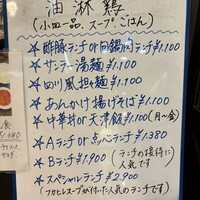 油淋鶏
(小皿一品、スープ、ごはん)
★酢豚ランチor回鍋肉ランチ¥1.100
★サンラー湯麺¥1.100
★四川風担々麺¥1.100
★あんかけ揚げそば¥1.100
★中華丼or天津飯¥1.100(月~金)
★Aランチor点心ランチ¥1.380
★Bランチ¥1.900(ランチの接待に
人気です)
★スペシャルランチ¥2.900
(フカヒレスープが付いた人気のランチです)